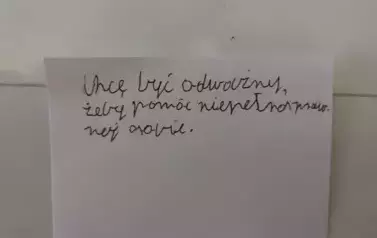 Chcę być odważny,
żeby pomóc niepełnospraw-
nej osobie.